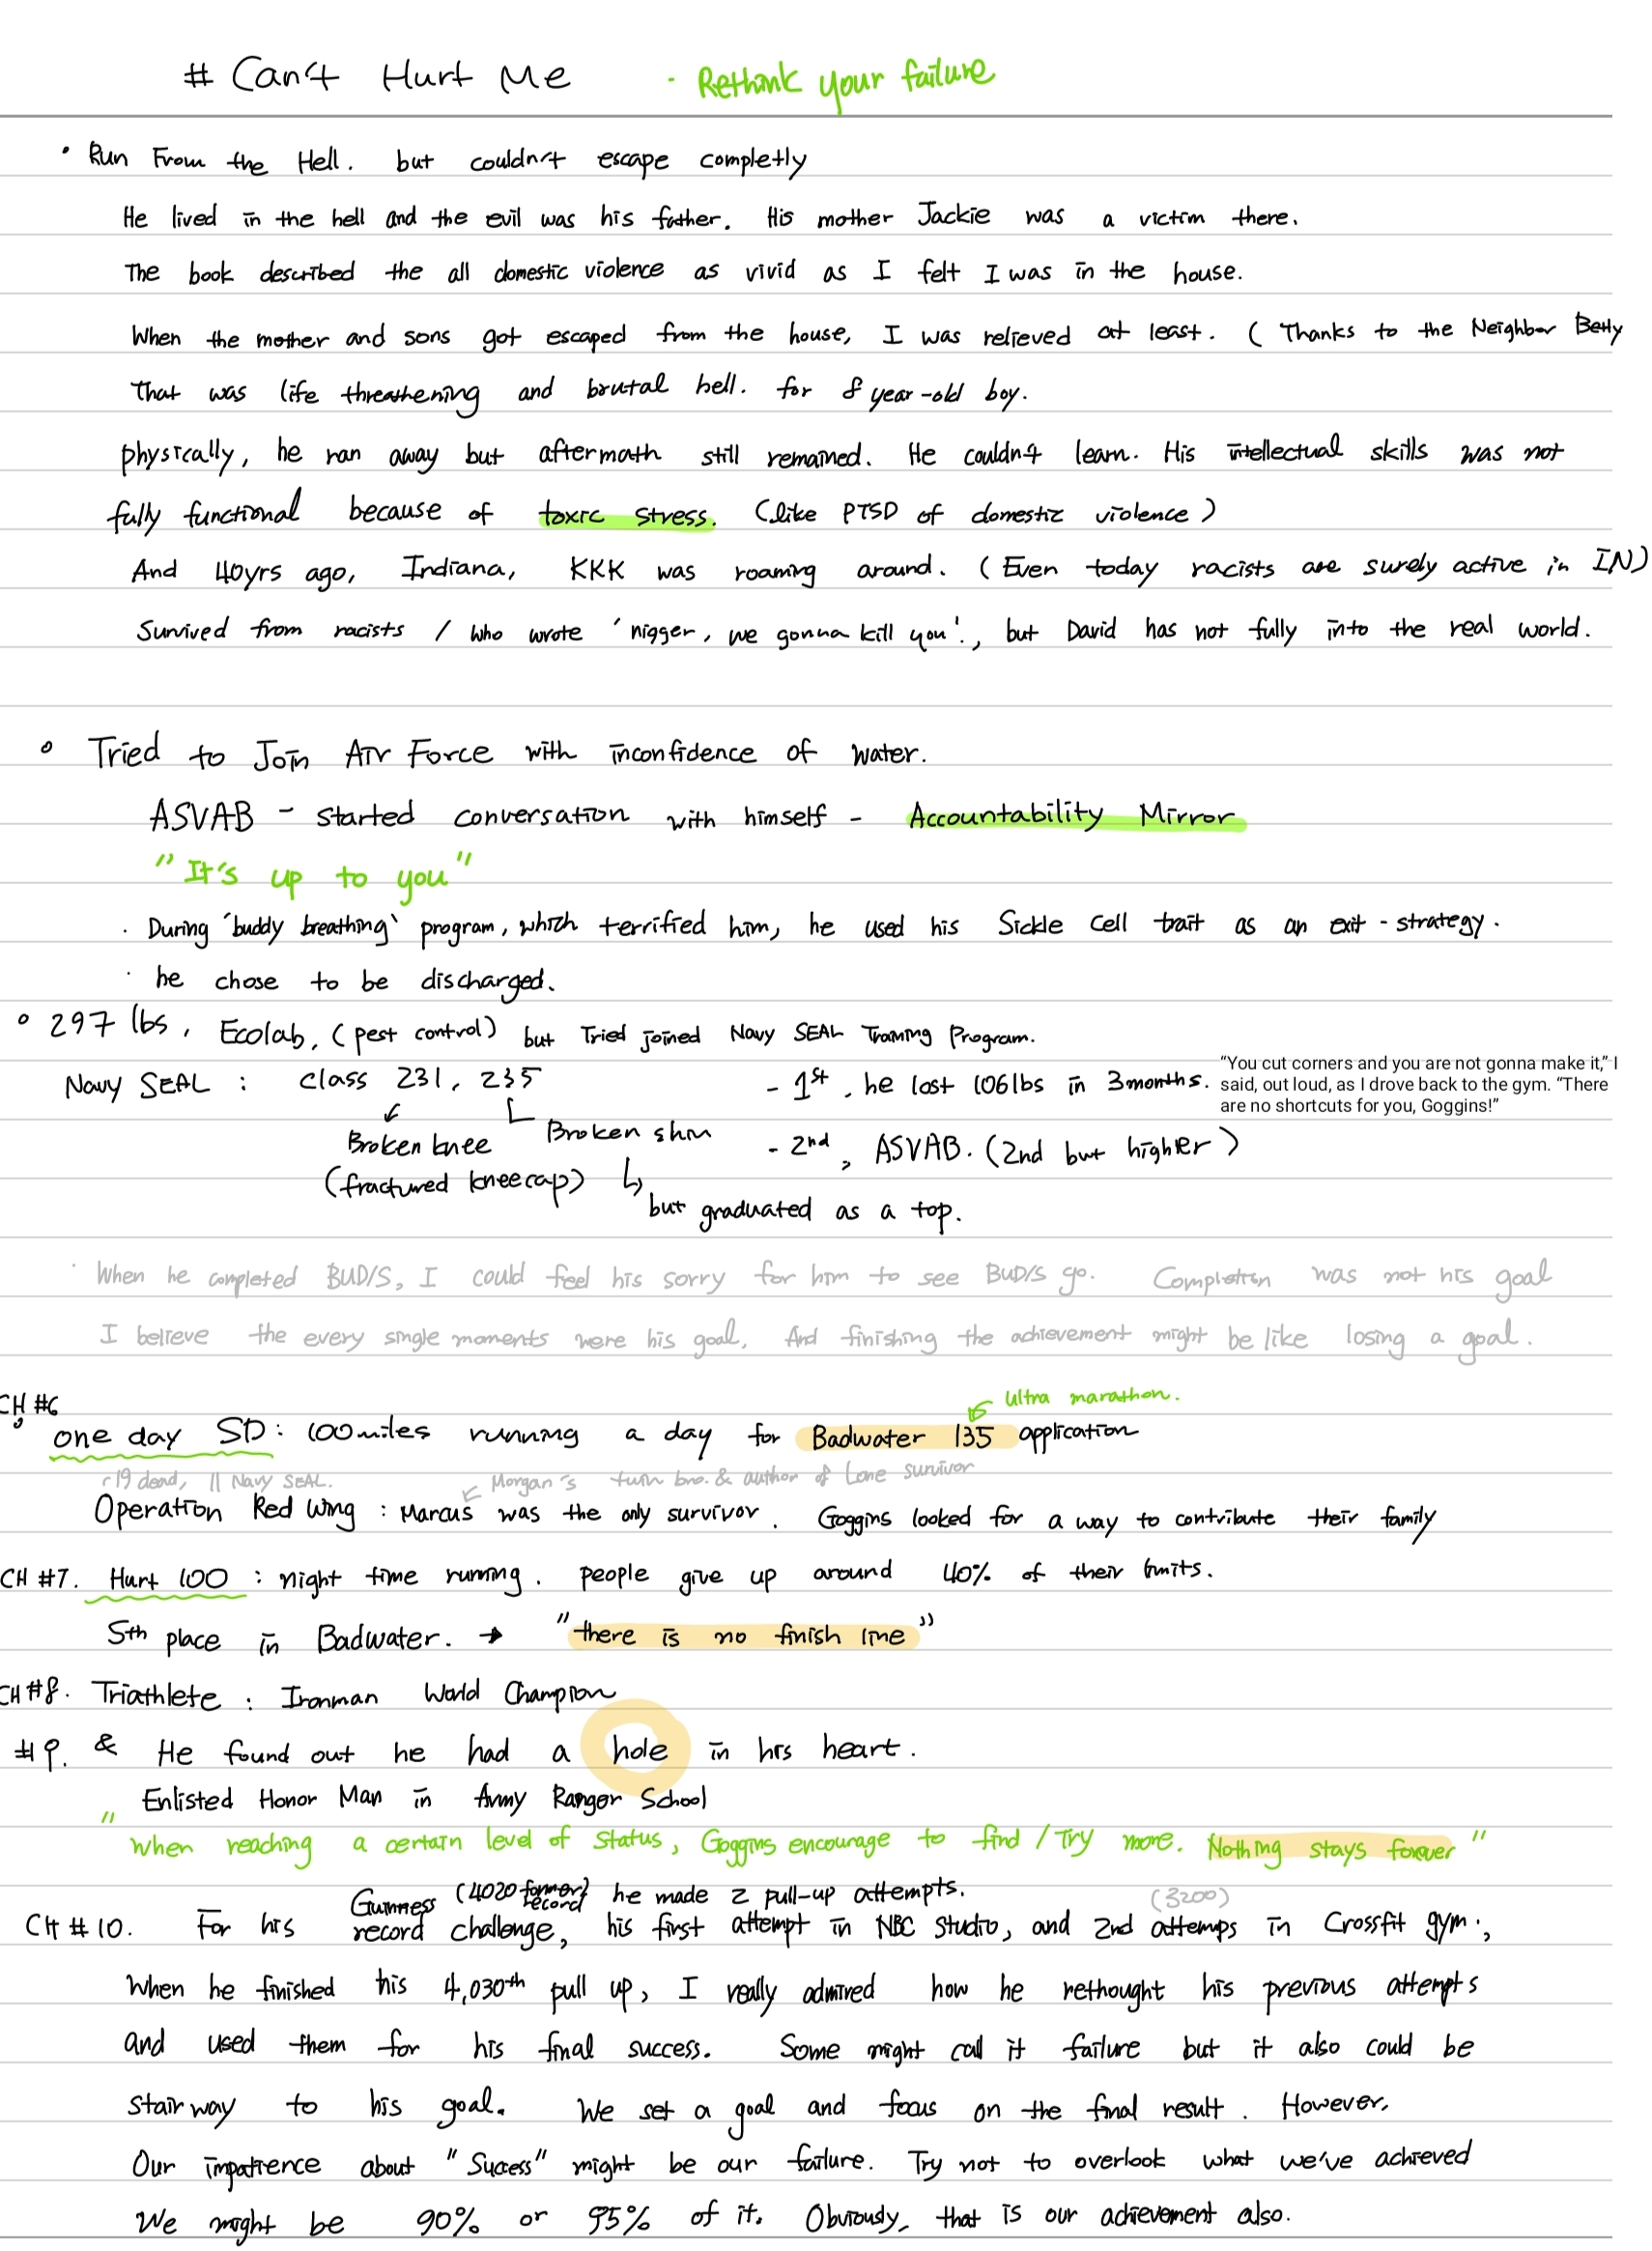 # Can't Hurt Me · Rethink your failure
• Run From the Hell. but couldn't escape completly
He lived in the hell and the evil was his father. His mother Jackie was a victim there.
The book described the all domestic violence as vivid as I felt I was in the house.
When the mother and sons got escaped from the house, I was relieved at least. ( Thanks to the Neighbor Betty
That was life threathening and brutal hell. for 8 year-old boy.
physically, he ran away but aftermath still remained. He couldn't learn. His intellectual skills was not
fully functional because of toxic stress. (like PTSD of domestic violence)
And 40yrs ago, Indiana, KKK was roaming around. (Even today racists are surely active in IN)
Survived from racists / who wrote 'nigger, we gonna kill you'., but David has not fully into the real world.
° Tried to Join Air Force with inconfidence of water.
ASVAB - started conversation with himself - Accountability Mirror
"It's up to you"
· During 'buddy breathing' program, which terrified him, he used his Sickle Cell trait as an exit-strategy.
· he chose to be discharged.
° 297 lbs, Ecolab, (pest control) but Tried joined Navy SEAL Training Program.
Navy SEAL : class 231, 235 - 1st, he lost 106lbs in 3months.
"You cut corners and you are not gonna make it," I
said, out loud, as I drove back to the gym. "There
are no shortcuts for you, Goggins!"
Broken knee Broken shin - 2nd, ASVAB. (2nd but higher)
(fractured kneecap) ↳ but graduated as a top.
· When he completed BUD/S, I could feel his sorry for him to see BUD/S go. Completion was not his goal
I believe the every single moments were his goal. And finishing the achievement might be like losing a goal.
CH #6 ultra marathon.
one day SD: 100miles running a day for Badwater 135 application
19 dead, 11 Navy SEAL. Morgan's twin bro. & author of Lone survivor
Operation Red Wing : Marcus was the only survivor. Goggins looked for a way to contribute their family
CH #7. Hurt 100 : night time running. people give up around 40% of their limits.
5th place in Badwater. → "there is no finish line"
CH #8. Triathlete : Ironman World Champion
#9. & He found out he had a hole in his heart.
Enlisted Honor Man in Army Ranger School
"When reaching a certain level of status, Goggins encourage to find / Try more. Nothing stays forever"
Guinness (4020 former record) he made 2 pull-up attempts. (3200)
CH #10. For his record challenge, his first attempt in NBC studio, and 2nd attemps in Crossfit gym.,
When he finished his 4,030th pull up, I really admired how he rethought his previous attempts
and used them for his final success. Some might call it failure but it also could be
stairway to his goal. We set a goal and focus on the final result. However,
Our impatience about "Success" might be our failure. Try not to overlook what we've achieved
We might be 90% or 95% of it. Obviously, that is our achievement also.